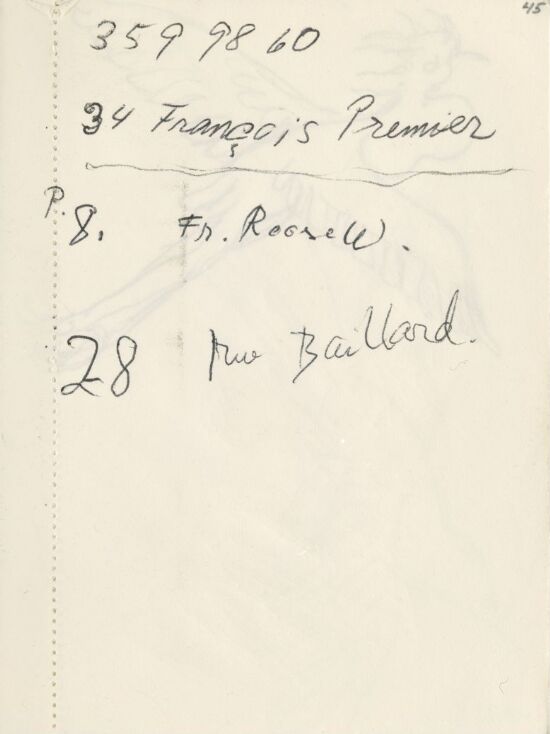 45
359 98 60
34 François Premier
P.8. Fr. Roosell.
28 rue Baillard.